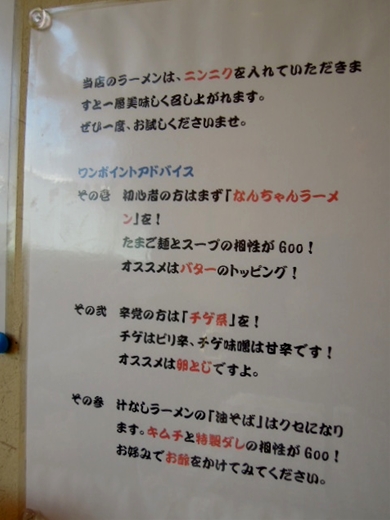 当店のラーメンは、ニンニクを入れていただきま
すと一層美味しく召し上がれます。
ぜひ一度、お試しくださいませ。
ワンポイントアドバイス
その壱 初心者の方はまず「なんちゃんラーメ
ン」を!
たまご麺とスープの相性がGoo!
オススメはバターのトッピング!
その弐 辛党の方は「チゲ系」を!
チゲはピリ辛、チゲ味噌は甘辛です!
オススメは卵とじですよ。
その参 汁なしラーメンの「油そば」はクセになり
ます。キムチと特製ダレの相性がGoo!
お好みでお酢をかけてみてください。